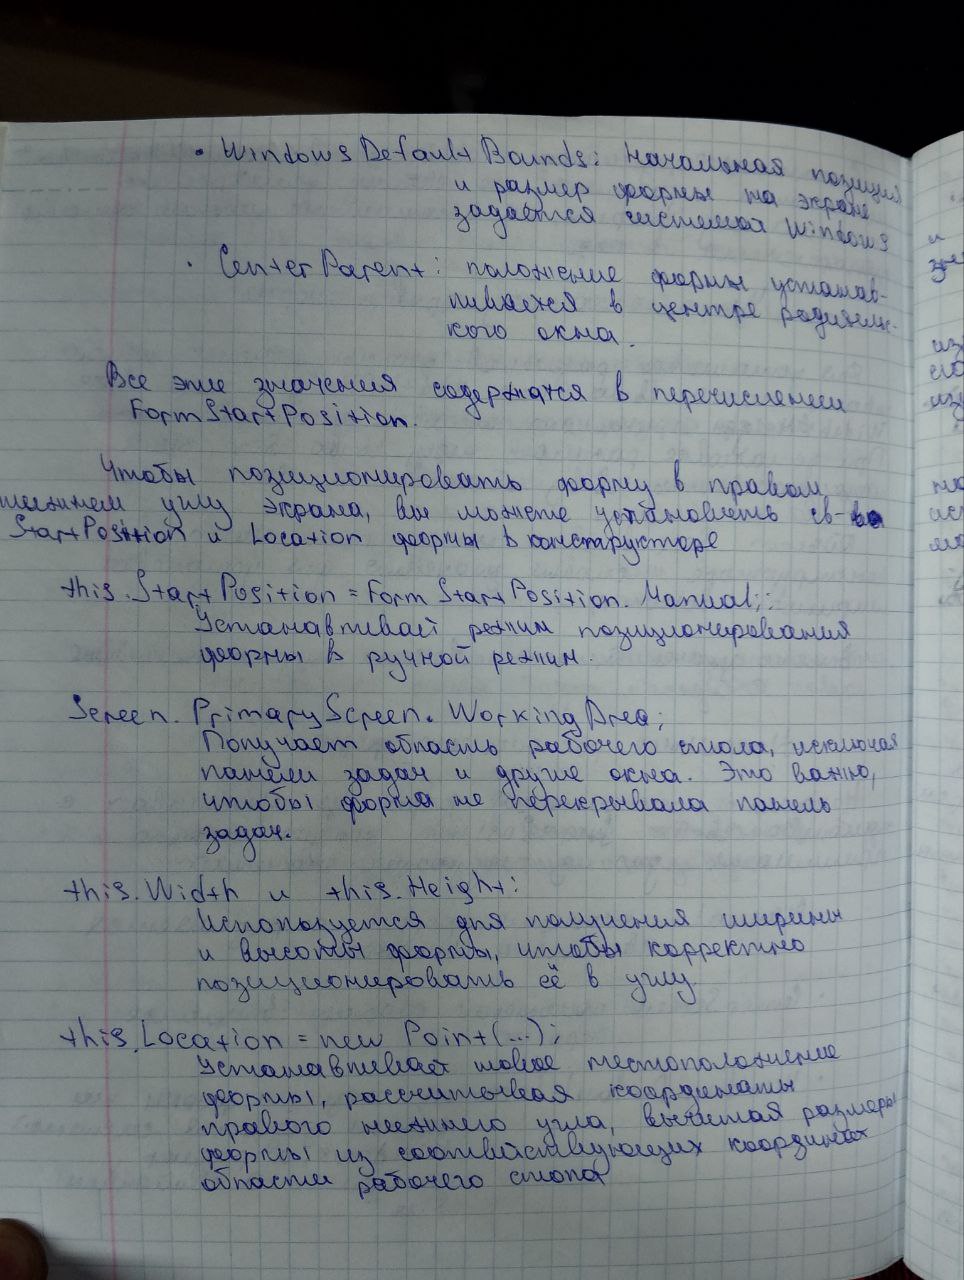 • WindowsDefaultBounds: Начальная позиция
и размер формы на экране
задаётся системой Windows
• CenterParent: положение формы устанав-
ливается в центре родительс-
кого окна.
Все эти значения содержатся в перечислении
FormStartPosition.
Чтобы позиционировать форму в правом
нижнем углу экрана, вы можете установить св-ва
StartPosition и Location формы в конструкторе
this.StartPosition = FormStartPosition.Manual;:
Устанавливает режим позиционирования
формы в ручной режим.
Screen.PrimaryScreen.WorkingArea;
Получает область рабочего стола, исключая
панели задач и другие окна. Это важно,
чтобы форма не перекрывала панель
задач.
this.Width и this.Height:
Используется для получения ширины
и высоты формы, чтобы корректно
позиционировать её в углу.
this.Location = new Point(...);
Устанавливает новое местоположение
формы, рассчитывая координаты
правого нижнего угла, вычитая размеры
формы из соответствующих координат
области рабочего стола